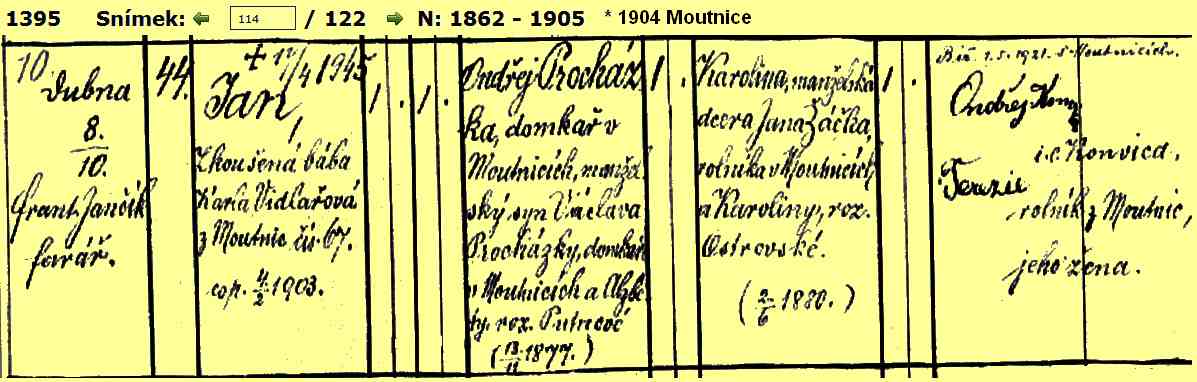 1395 Snímek: 114 / 122 N: 1862 - 1905 * 1904 Moutnice
10.
dubna
8.
10.
Frant. Jančík
farář.
44.
+ 17/4 1945
Jan,
Zkoušená bába
Karla Vidlařová
z Moutnic čís. 67.
cop. 4/2 1903.
1 . 1 .
Ondřej Procház
ka, domkař v
Moutnicích, manžel
ský syn Václava
Procházky, domkaře
v Moutnicích a Alžbě
ty, roz.
1877.)
1 .
Karolina, manželská
dcera Jana Žáčka,
rolníka v Moutnicích
a Karoliny, roz.
Ostrovské.
(2/6 1880.)
1 .
1.5. 1921. v Moutnicích.
Ondřej
i.c. Konvica,
Terezie
rolník z Moutnic,
jeho žena.